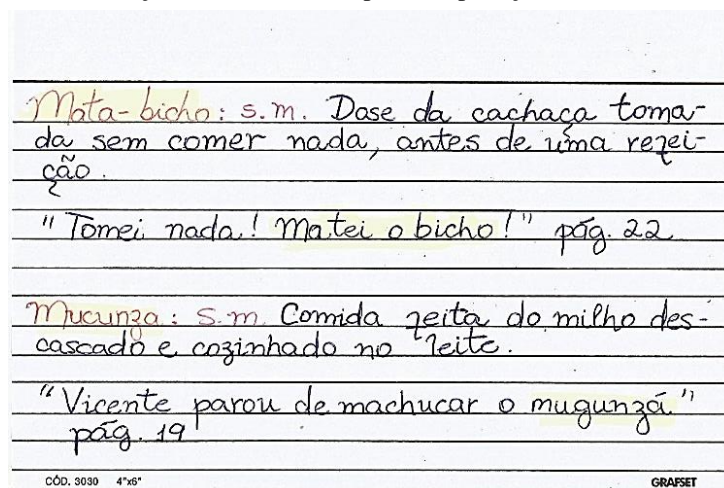 Mata-bicho: s.m. Dose da cachaça toma-
da sem comer nada, antes de uma refei-
ção.
"Tomei nada! Matei o bicho!" pág. 22
Mucunza: s.m. Comida feita do milho des-
cascado e cozinhado no leite.
"Vicente parou de machucar o mugunzá"
pág. 19
CÓD. 3030 4"x6" GRAFSET